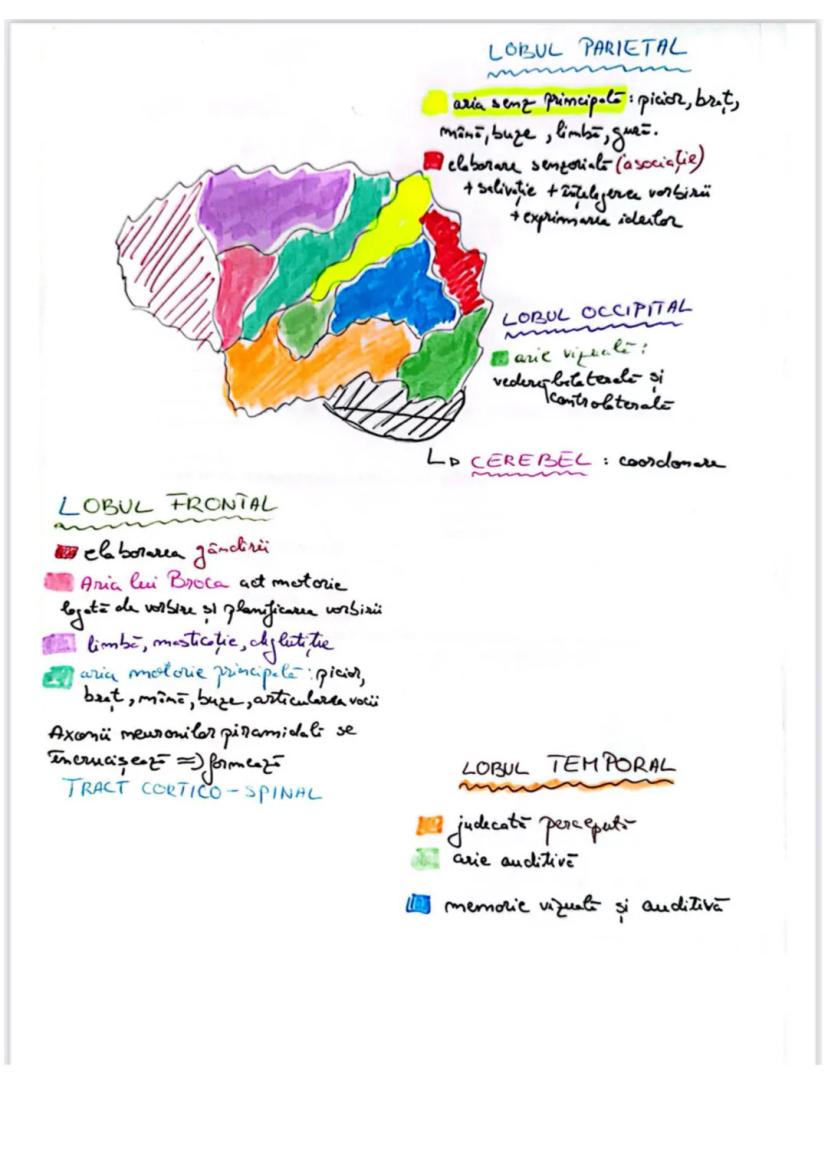 LOBUL PARIETAL
aria senz principală : picior, braț,
mână, buze, limbă, gură.
elaborare senzorială (asociație)
+ salivație + înțelegerea vorbirii
+ exprimarea ideilor
LOBUL OCCIPITAL
arie vizuală :
vedere bilaterală și
controlaterală
CEREBEL : coordonare
LOBUL FRONTAL
elaborarea gândirii
Aria lui Broca act motorie
legată de vorbire și planificarea vorbirii
limbă, masticație, deglutiție
aria motorie principală : picior,
braț, mână, buze, articularea vocii
Axonii neuronilor piramidali se
încrucișează => formează
TRACT CORTICO - SPINAL
LOBUL TEMPORAL
judecată percepută
arie auditivă
memorie vizuală și auditivă